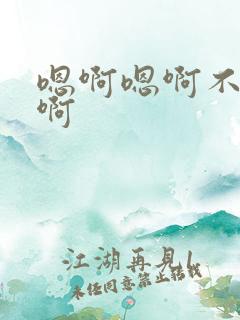 嗯啊嗯啊不
啊
江湖再见
未经同意禁止转载